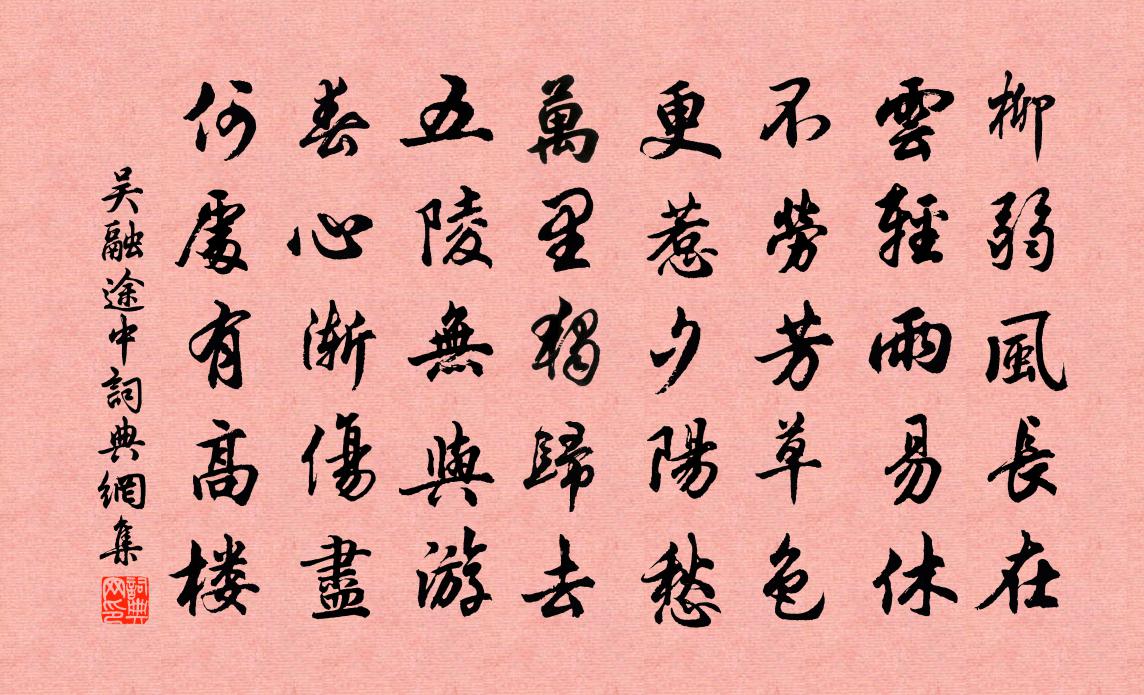 柳弱風長在
雲輕雨易休
不勞芳草色
更惹夕陽愁
萬里獨歸去
五陵無與游
春心漸傷盡
何處有高楼
吴融途中詞典網集
詞典网印